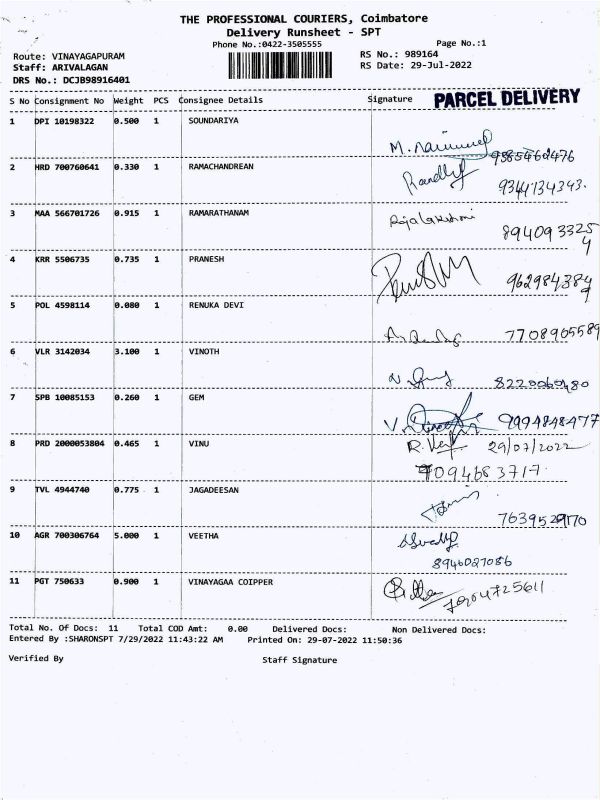 THE PROFESSIONAL COURIERS, Coimbatore
Delivery Runsheet - SPT
Phone No.:0422-3505555 Page No.:1
Route: VINAYAGAPURAM RS No.: 989164
Staff: ARIVALAGAN RS Date: 29-Jul-2022
DRS No.: DCJB98916401
PARCEL DELIVERY
S No Consignment No Weight PCS Consignee Details Signature
1 DPI 10198322 0.500 1 SOUNDARIYA
2 HRD 700760641 0.330 1 RAMACHANDREAN
9344134343.
3 MAA 566701726 0.915 1 RAMARATHANAM Rajalakshmi
8940933254
4 KRR 5506735 0.735 1 PRANESH
9629843849
5 POL 4598114 0.080 1 RENUKA DEVI
7708905589
6 VLR 3142034 3.100 1 VINOTH
8220060480
7 SPB 10085153 0.260 1 GEM
9994848477
8 PRD 2000053804 0.465 1 VINU 29/07/2022
7094683717
9 TVL 4944740 0.775 1 JAGADEESAN
7639529170
10 AGR 700306764 5.000 1 VEETHA
8946027086
11 PGT 750633 0.900 1 VINAYAGAA COIPPER
Total No. Of Docs: 11 Total COD Amt: 0.00 Delivered Docs: Non Delivered Docs:
Entered By :SHARONSPT 7/29/2022 11:43:22 AM Printed On: 29-07-2022 11:50:36
Verified By Staff Signature